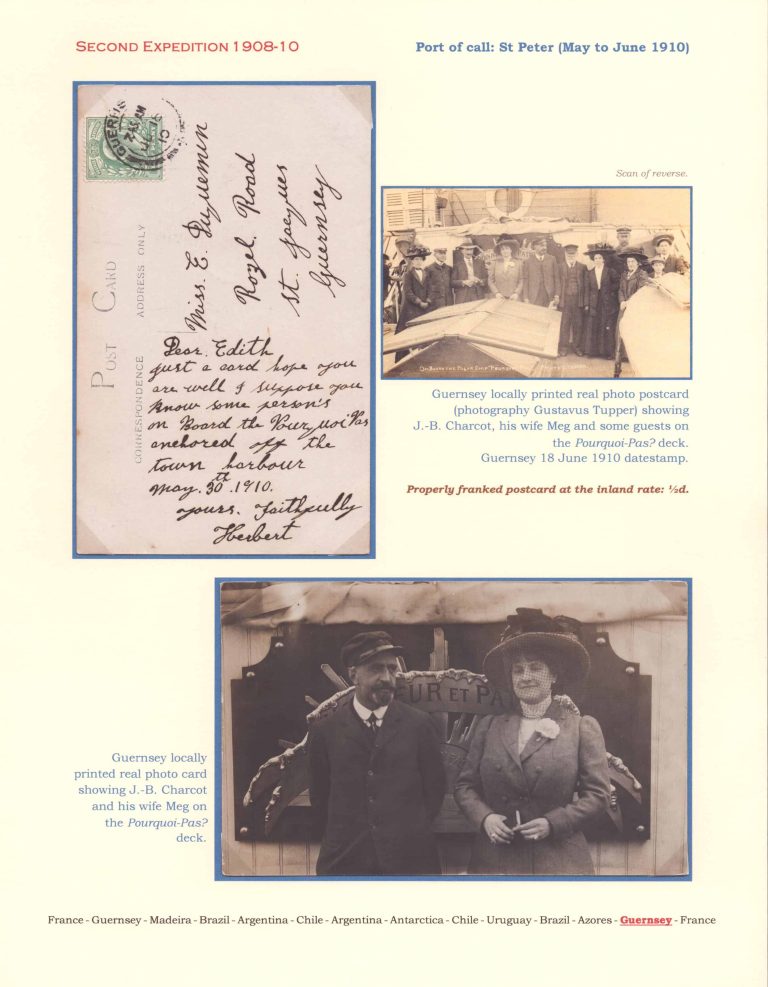 SECOND EXPEDITION 1908-10
Port of call: St Peter (May to June 1910)
GUERNS
JU 18
10
POST CARD
CORRESPONDENCE
ADDRESS ONLY
Miss. E. Duquemin
Rozel. Road
St. Jacques
Guernsey
Dear. Edith
just a card hope you
are well I suppose you
know some person's
on Board the Pourquoi Pas
anchored off the
town harbour
may. 30th. 1910.
yours. faithfully
Herbert
Scan of reverse.
ON BOARD THE POLAR SHIP "POURQUOI PAS"
Guernsey locally printed real photo postcard
(photography Gustavus Tupper) showing
J.-B. Charcot, his wife Meg and some guests on
the Pourquoi-Pas? deck.
Guernsey 18 June 1910 datestamp.
Properly franked postcard at the inland rate: ½d.
EUR ET PA
Guernsey locally
printed real photo card
showing J.-B. Charcot
and his wife Meg on
the Pourquoi-Pas?
deck.
France - Guernsey - Madeira - Brazil - Argentina - Chile - Argentina - Antarctica - Chile - Uruguay - Brazil - Azores - Guernsey - France